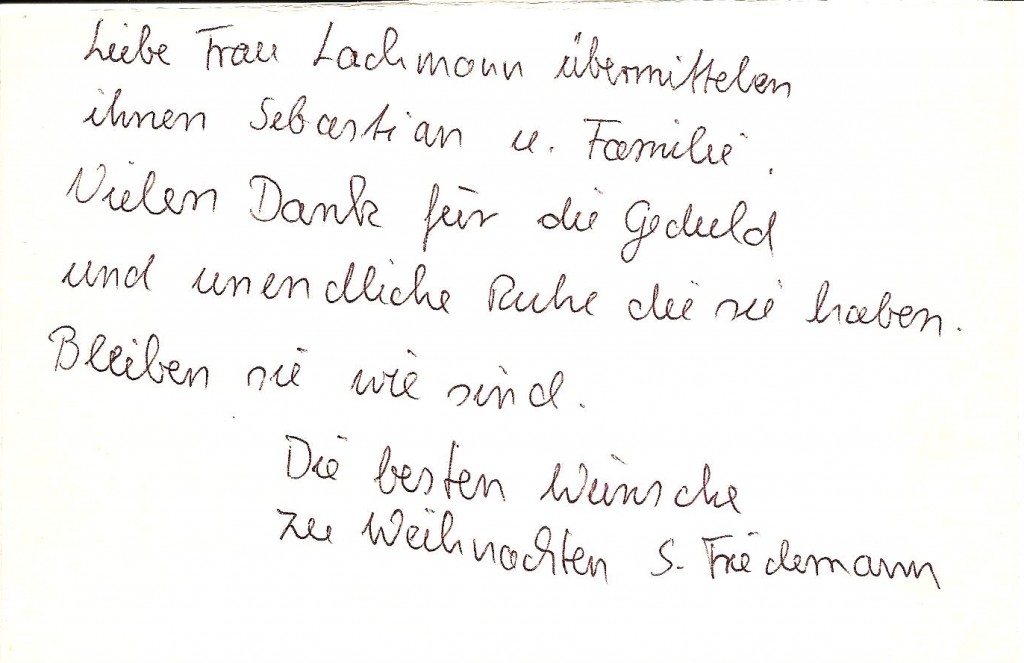 Liebe Frau Lachmann übermittelen
ihnen Sebastian u. Familie.
Vielen Dank für die Geduld
und unendliche Ruhe die sie haben.
Bleiben sie wie sind.
Die besten Wünsche
zu Weihnachten S. Friedemann